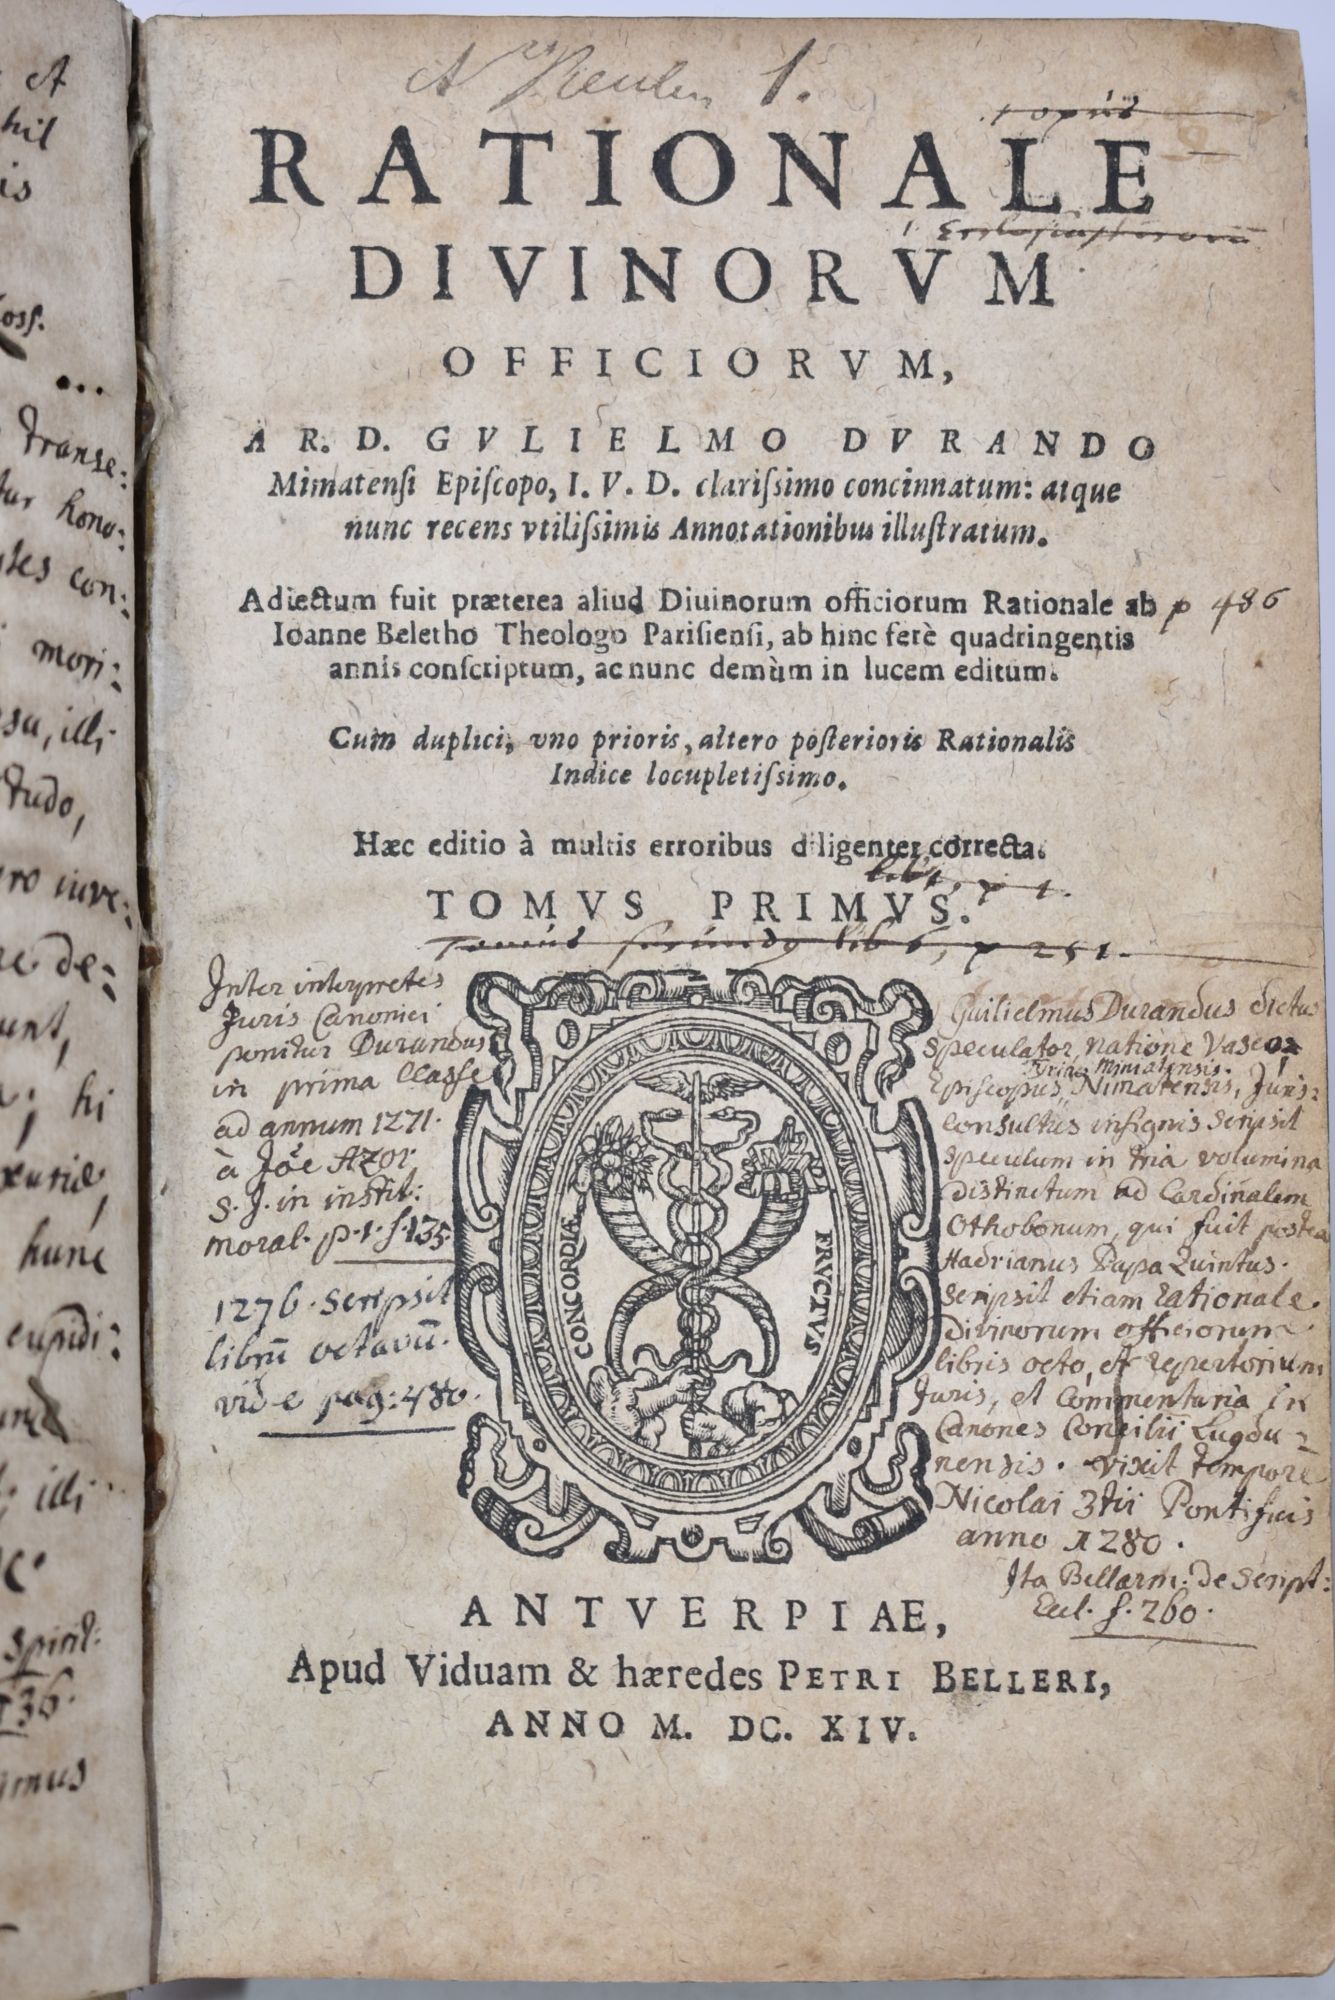 et
hil
is
oss.
...
transe:
tur hono:
ales con:
mori:
su, illi
tudo,
ro iuve:
re de:
unt,
; hi
hunc
cupidi:
illi
spirit:
136.
imus
1.
RATIONALE
DIVINORVM
OFFICIORVM,
A R. D. GVLIELMO DVRANDO
Mimatensi Episcopo, I. V. D. clarissimo concinnatum: atque
nunc recens vtilissimis Annotationibus illustratum.
Adiectum fuit præterea aliud Diuinorum officiorum Rationale ab p 486
Ioanne Beletho Theologo Parisiensi, ab hinc ferè quadringentis
annis conscriptum, ac nunc demùm in lucem editum.
Cum duplici, vno prioris, altero posterioris Rationalis
Indice locupletissimo.
Hæc editio à multis erroribus diligenter correcta.
lib 1, p 1.
TOMVS PRIMVS.
Tomus secundus lib 6, p 251.
Inter interpretes
Juris Canonici
ponitur Durandus
in prima Classe
ad annum 1271.
à Joe Azor
S. J. in instit:
moral. p. 1. f. 135.
1276. scripsit
librũ octavũ.
vide pag: 480.
CONCORDIÆ
FRVCTVS
Guilielmus Durandus dictus
speculator, natione Vasco,
Mimatensis.
Episcopus, Nimatensis, Juris:
consultus insignis scripsit
speculum in tria volumina
distinctum ad Cardinalem
Othobonum, qui fuit postea
Hadrianus Papa Quintus.
scripsit etiam rationale
divinorum officiorum
libris octo, et repertorium
Juris, et Commentaria in
Canones Concilii Lugdu:
nensis. vixit tempore
Nicolai 3tii Pontificis
anno 1280.
Ita Bellarm: de script:
Eccl. f. 260.
ANTVERPIAE,
Apud Viduam & hæredes PETRI BELLERI,
ANNO M. DC. XIV.